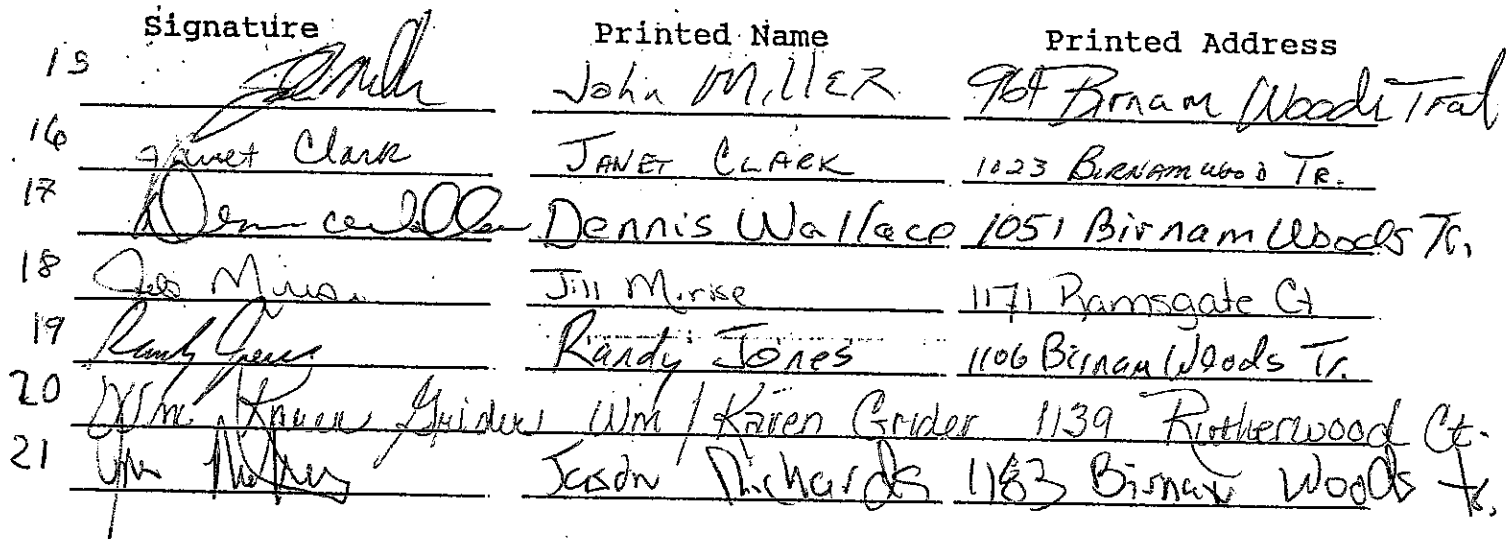 Signature Printed Name Printed Address
15 John MillER 964 Birnam Woods Trail
16 Janet Clark JANET CLARK 1023 BIRNAM WOOD TR.
17 Dennis Wallace 1051 Birnam Woods Tr.
18 Jill Mirise 1171 Ramsgate Ct
19 Randy Jones Randy Jones 1106 Birnam Woods Tr.
20 Wm. Karen Grider Wm / Karen Grider 1139 Rutherwood Ct.
21 Jason Richards 1183 Birnam Woods Tr.